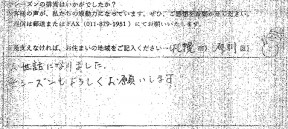 ズンの排雪はいかがでしたか?
客様の声が、私たちの原動力になっています。ぜひ、ご感想をお聞かせください。
返信は郵送またはFAX(011-879-1951)にてお願いいたします。
差支えなければ、お住まいの地域をご記入ください→札幌 市 厚別 区
お世話になりました。
来シーズンもよろしくお願いします